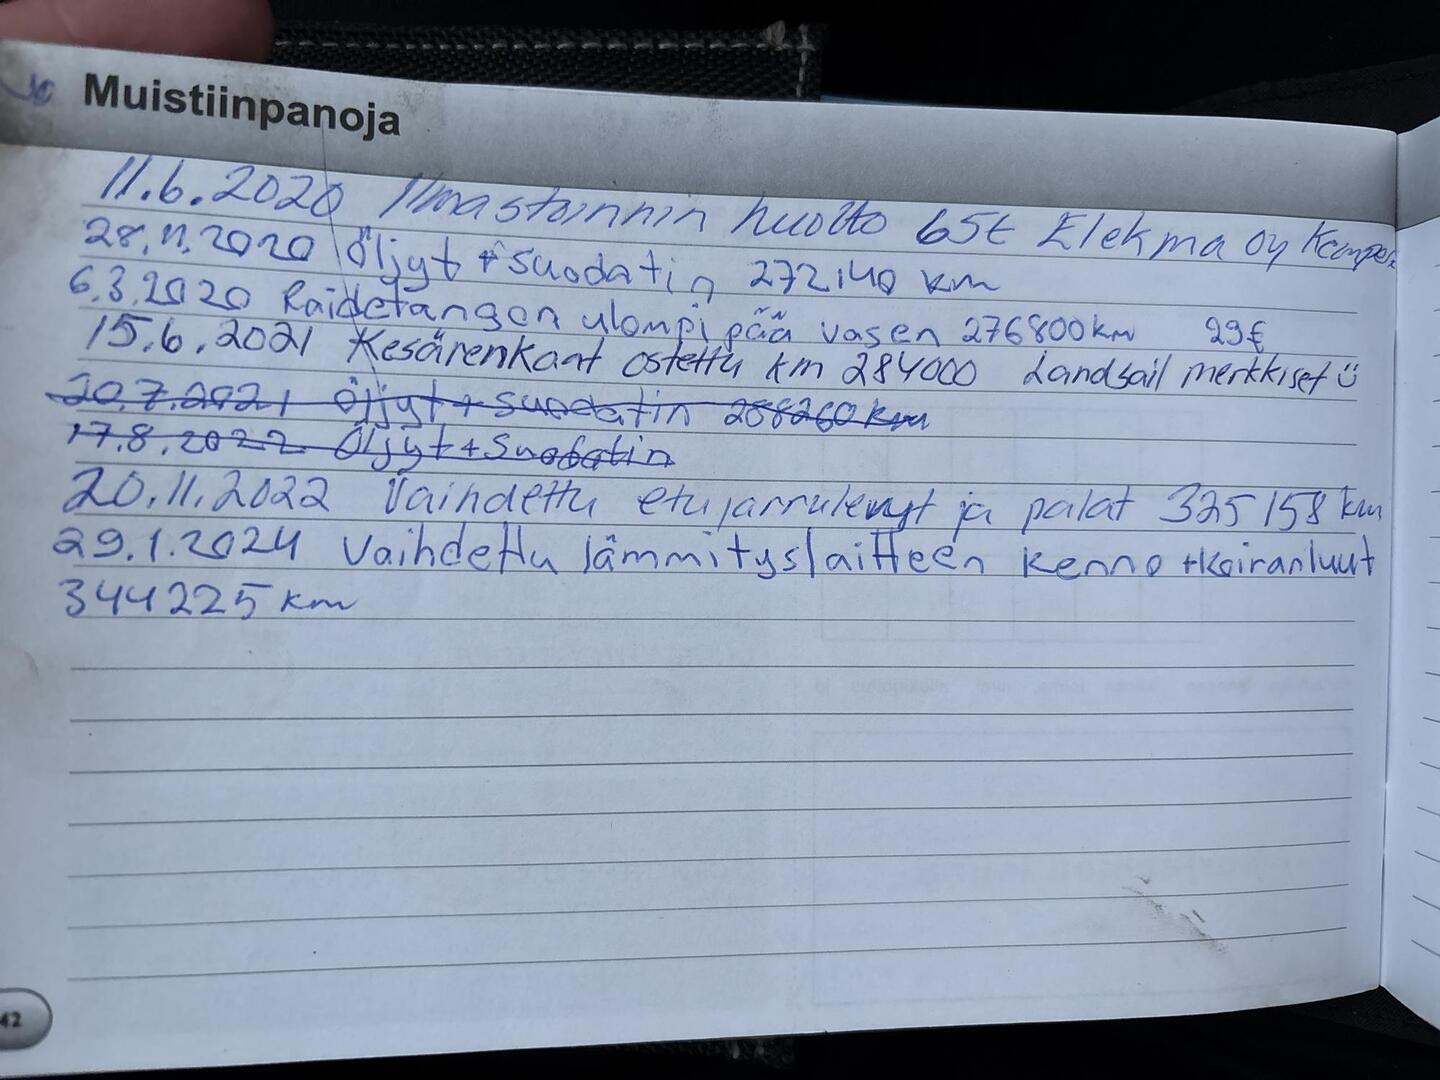 Muistiinpanoja
11.6.2020 Ilmastoinnin huolto 65€ Elekma Oy
28.11.2020 Öljyt + suodatin 272140 km
6.3.2020 Raidetangon ulompi pää vasen 276800 km 29€
15.6.2021 Kesärenkaat ostettu km 284000 Landsail merkkiset
20.7.2021 Öljyt + suodatin 288260 km
17.8.2022 Öljyt + Suodatin
20.11.2022 Vaihdettu etujarrulevyt ja palat 325158 km
29.1.2024 Vaihdettu lämmityslaitteen kenno + Koiranluut
344225 km
42